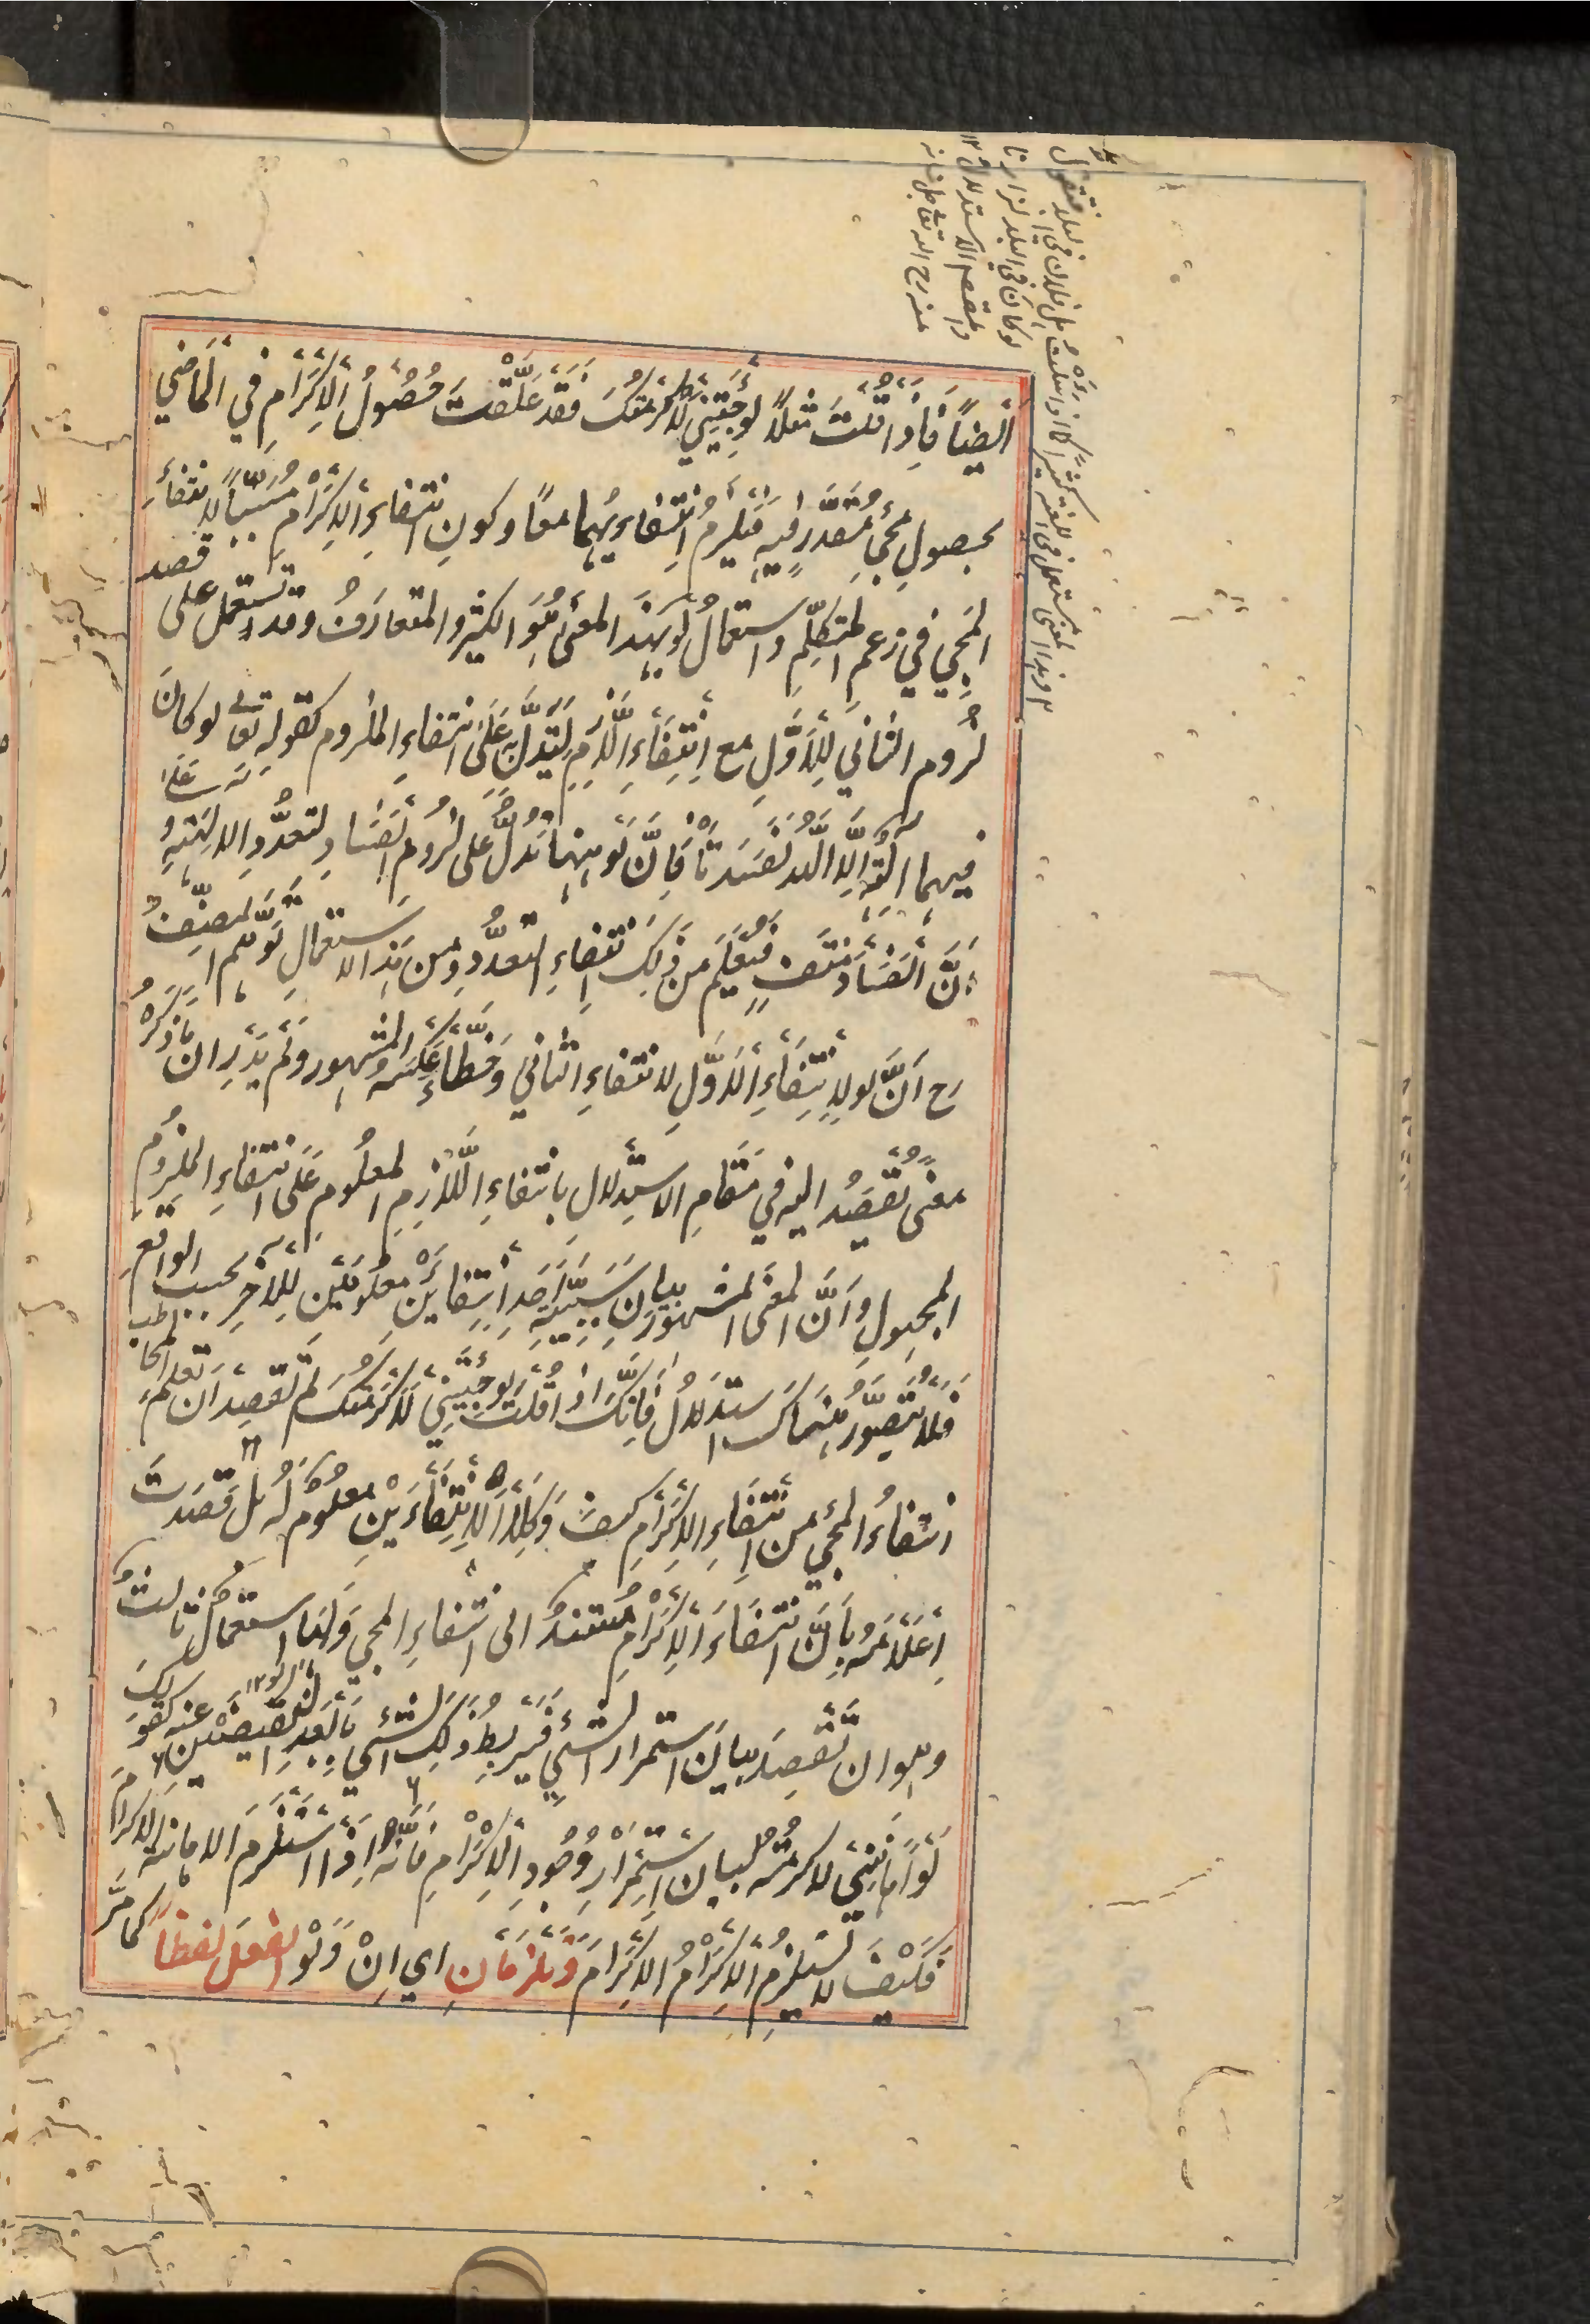 أيضًا فإذا قلت مثلًا لو جئتني لأكرمتك فقد علقت حصول الإكرام في الماضي
بحصول مجيء مقدر فيه فيلزم انتفاءهما معًا وكون انتفاء الإكرام مسببًا لانتفاء
المجيء في زعم المتكلم واستعمال لو بهذا المعنى هو الكثير المتعارف وقد تستعمل على قصد
لزوم الثاني للأول مع انتفاء اللازم ليتدل به على انتفاء الملزوم كقوله تعالى لو كان
فيهما آلهة إلا الله لفسدتا فإن لو ههنا تدل على لزوم الفساد لتعدد الآلهة وعلى
أن الفساد منتف فيعلم من ذلك انتفاء التعدد ومن هذا الاستعمال توهم المصنف
رح أن لو لانتفاء الأول لانتفاء الثاني وخطأ عكسه المشهور ولم يدر ان ما ذكره
معنى يقصد اليه في مقام الاستدلال بانتفاء اللازم المعلوم على انتفاء الملزوم
المجهول وأن المعنى المشهور بيان سببية أحد انتفائين معلومين للآخر بحسب الواقع
فلا يتصور هناك استدلال فإنك إذا قلت لو جئتني لأكرمتك لم تقصد أن تعلم المخاطب
انتفاء المجيء من انتفاء الإكرام كيف وكلا الانتفاءين معلوم له بل قصدت
إعلامه بأن انتفاء الإكرام مستند الى انتفاء المجيء ولها استعمال ثالث
وهو ان تقصد بيان استمرار الشيء فيربط ذلك الشيء بأبعد النقيضين عنه كقولك
لو أهانني لأكرمته لبيان استمرار وجود الإكرام فإنه إذا استلزم الاهانة الإكرام
فكيف لا يستلزم الإكرام الإكرام وتلزمان اي إن ولو الفعل لفظا كما مر
فتقول
لو كان في البلد لزارنا
منه رح الله تعالى